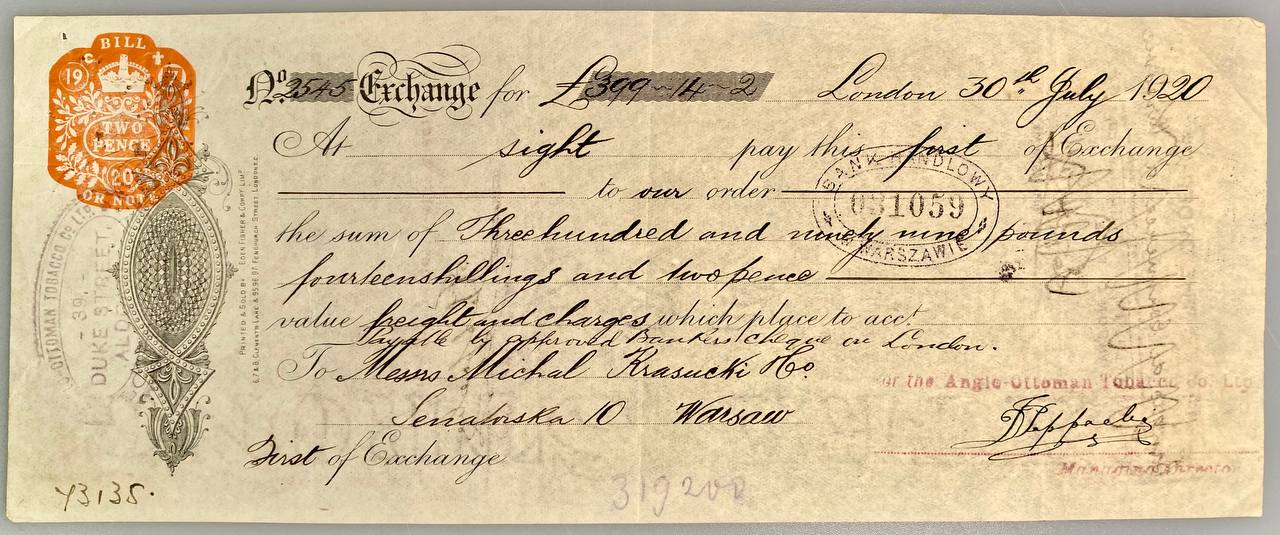 BILL
19 20
TWO
PENCE
OR NOTE
No 2545 Exchange for £399-14-2 London 30th July 1920
At sight pay this first of Exchange
to our order
BANK HANDLOWY
081059
W WARSZAWIE
the sum of Threehundred and ninety nine pounds
fourteenshillings and twopence
value freight and charges which place to acct
Payable by approved Bankers cheque on London.
To Messrs Michal Krasucki & Co
Senatorska 10 Warsaw
First of Exchange
or the Anglo-Ottoman Tobacco Co. Ltd
Managing Director
OTTOMAN TOBACCO Co LTD
- 39, -
DUKE STREET,
PRINTED & SOLD BY EDEN FISHER & COMPY LIMD
6,7 & 8, CLEMENTS LANE & 95,96,97 FENCHURCH STREET LONDON E.C.
43135.
319200